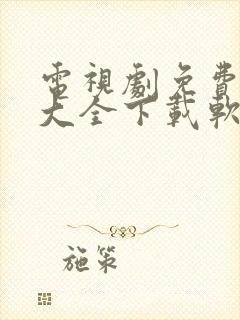 電視劇免費
大全下載軟
施策